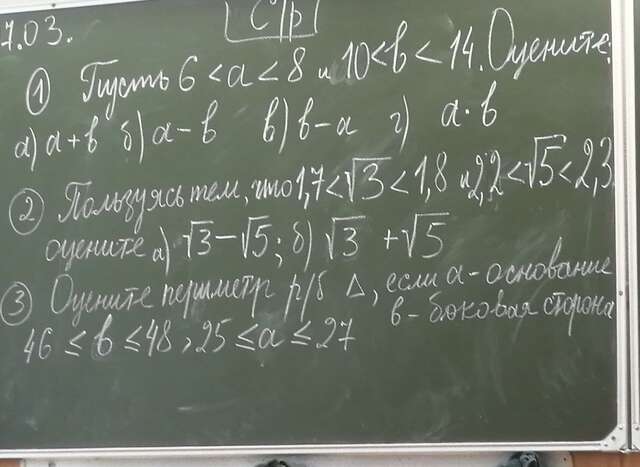 7.03.
С/р
① Пусть 6 < a < 8 и 10 < b < 14. Оцените:
а) a + b б) a - b в) b - a г) a · b
② Пользуясь тем, что 1,7 < √3 < 1,8 и 2,2 < √5 < 2,3
оцените а) √3 - √5; б) √3 + √5
③ Оцените периметр р/б △, если a - основание
b - боковая сторона
46 ≤ b ≤ 48, 25 ≤ a ≤ 27